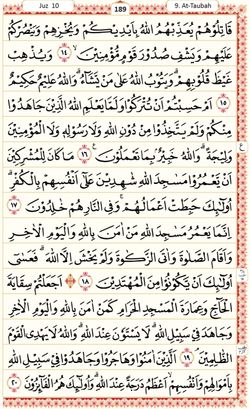 Juz 10
189
9. At-Taubah
قَاتِلُوْهُمْ يُعَذِّبْهُمُ اللّٰهُ بِاَيْدِيْكُمْ وَيُخْزِهِمْ وَيَنْصُرْكُمْ
عَلَيْهِمْ وَيَشْفِ صُدُوْرَ قَوْمٍ مُّؤْمِنِيْنَۙ ١٤ وَيُذْهِبْ
غَيْظَ قُلُوْبِهِمْۗ وَيَتُوْبُ اللّٰهُ عَلٰى مَنْ يَّشَاۤءُۗ وَاللّٰهُ عَلِيْمٌ حَكِيْمٌ
١٥ اَمْ حَسِبْتُمْ اَنْ تُتْرَكُوْا وَلَمَّا يَعْلَمِ اللّٰهُ الَّذِيْنَ جَاهَدُوْا
مِنْكُمْ وَلَمْ يَتَّخِذُوْا مِنْ دُوْنِ اللّٰهِ وَلَا رَسُوْلِهٖ وَلَا الْمُؤْمِنِيْنَ
وَلِيْجَةًۗ وَاللّٰهُ خَبِيْرٌۢ بِمَا تَعْمَلُوْنَ ١٦ مَا كَانَ لِلْمُشْرِكِيْنَ
اَنْ يَّعْمُرُوْا مَسٰجِدَ اللّٰهِ شٰهِدِيْنَ عَلٰٓى اَنْفُسِهِمْ بِالْكُفْرِۗ
اُولٰۤىِٕكَ حَبِطَتْ اَعْمَالُهُمْۚ وَفِى النَّارِ هُمْ خٰلِدُوْنَ ١٧
اِنَّمَا يَعْمُرُ مَسٰجِدَ اللّٰهِ مَنْ اٰمَنَ بِاللّٰهِ وَالْيَوْمِ الْاٰخِرِ
وَاَقَامَ الصَّلٰوةَ وَاٰتَى الزَّكٰوةَ وَلَمْ يَخْشَ اِلَّا اللّٰهَۗ فَعَسٰٓى
اُولٰۤىِٕكَ اَنْ يَّكُوْنُوْا مِنَ الْمُهْتَدِيْنَ ١٨ اَجَعَلْتُمْ سِقَايَةَ
الْحَاۤجِّ وَعِمَارَةَ الْمَسْجِدِ الْحَرَامِ كَمَنْ اٰمَنَ بِاللّٰهِ وَالْيَوْمِ الْاٰخِرِ
وَجَاهَدَ فِيْ سَبِيْلِ اللّٰهِۗ لَا يَسْتَوٗنَ عِنْدَ اللّٰهِۗ وَاللّٰهُ لَا يَهْدِى الْقَوْمَ
الظّٰلِمِيْنَۘ ١٩ اَلَّذِيْنَ اٰمَنُوْا وَهَاجَرُوْا وَجَاهَدُوْا فِيْ سَبِيْلِ اللّٰهِ
بِاَمْوَالِهِمْ وَاَنْفُسِهِمْۙ اَعْظَمُ دَرَجَةً عِنْدَ اللّٰهِۗ وَاُولٰۤىِٕكَ هُمُ الْفَاۤىِٕزُوْنَ ٢٠